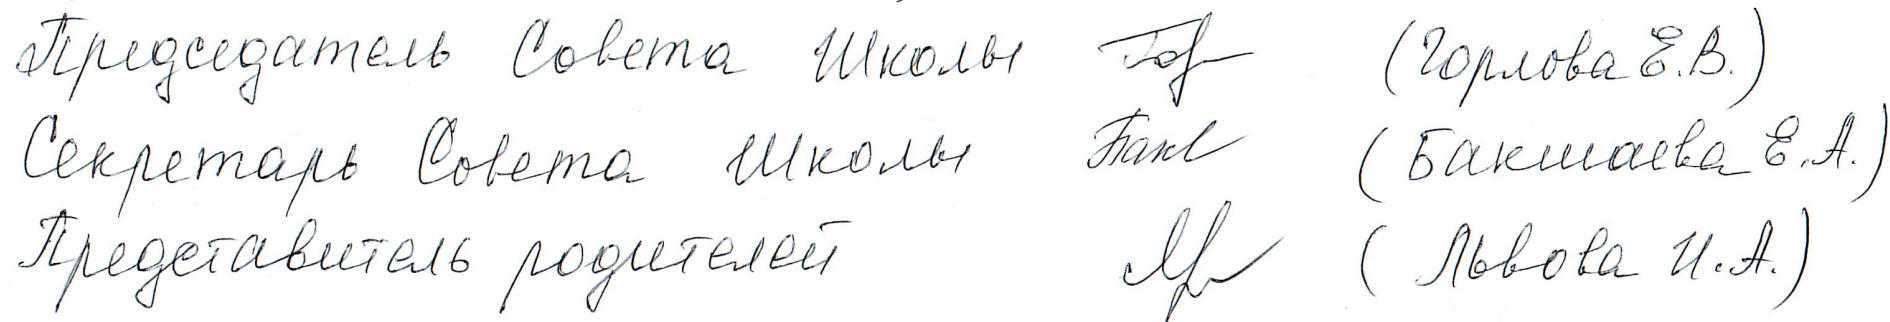 Председатель Совета Школы (Горлова Е.В.)
Секретарь Совета Школы (Бакшаева Е.А.)
Представитель родителей (Львова И.А.)